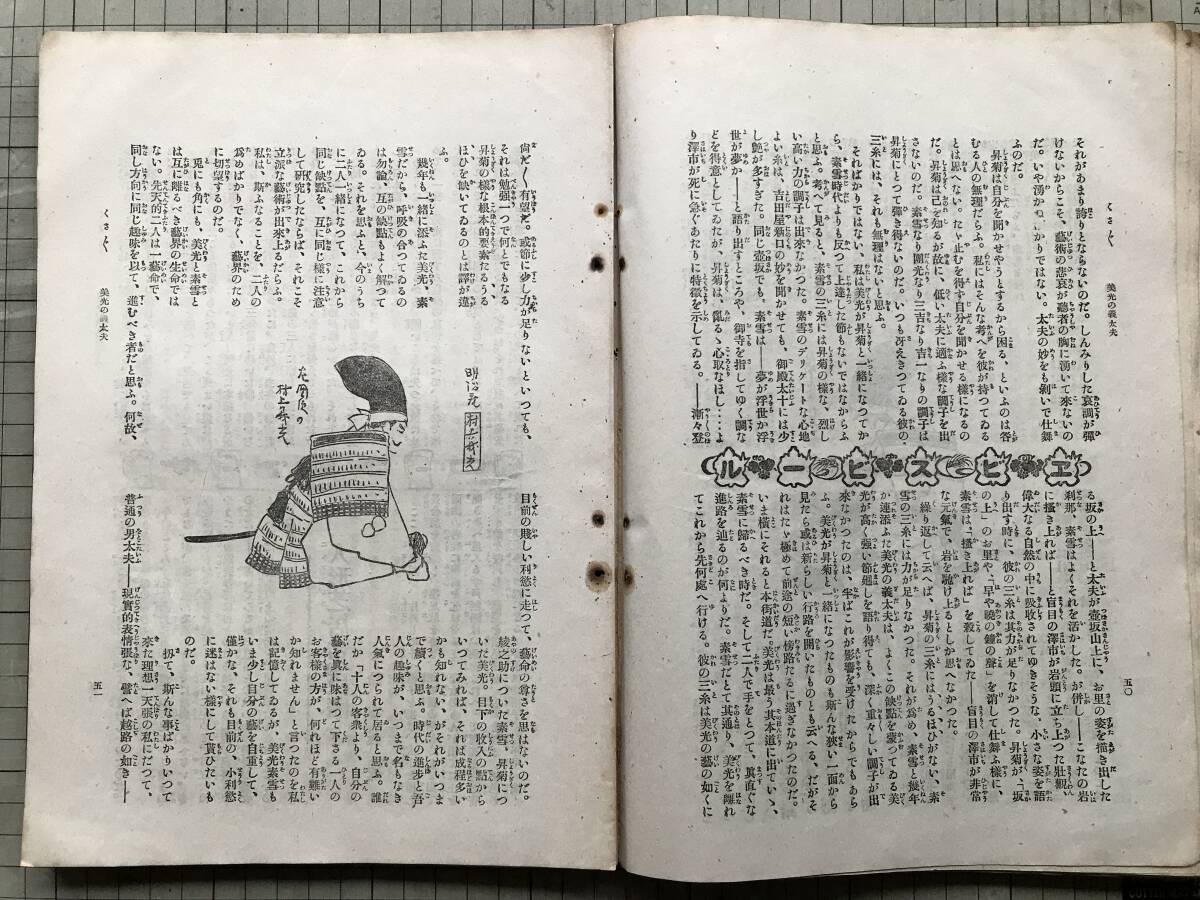 くさ〴〵
美光の義太夫
五〇
それがあまり誇りとならないのだ。しんみりした哀調が彈
けないからこそ、藝術の悲哀が聽者の胸に湧いて來ないの
だ。いや湧かぬばかりではない。太夫の妙をも剝いで仕舞
ふのだ。
昇菊は自分を聞かせやうとするから困る、といふのは咎
むる人の無理だらふ。私にはそんな考へを彼が持つてゐる
とは思へない。たゞ止むを得ず自分を聞かせる樣になるの
だ。昇菊は己を知るが故に、低い太夫に適ふ樣な調子を出
さないのだ。素雪なり團光なり三吉なり吉一なりの調子は
昇菊にとつて彈き得ないのだ。いつも冴えきつてゐる彼の
三糸には、それも無理はないと思ふ。
そればかりではない、私は美光が昇菊と一緒になつてか
ら、素雪時代よりも反つて上達した節もないではなからふ
と思ふ。考へて見ると、素雪の三糸には昇菊の樣な、烈し
い高い力の調子は出來なかつた。素雪のデリケートな心地
よい糸は、吉田屋、新口の妙を聞かせても、御殿、太十には少
し艷が多すぎた。同じ壺坂でも、素雪は――夢が浮世か浮
世が夢か――と語り出すところや、御寺を指してゆく調な
どを得意としてゐたが、昇菊は、亂るゝ心取なほし‥‥よ
り澤市が死に急ぐあたりに特徵を示してゐる。――漸々登
ヱビスビール
る坂の上――と太夫が壺坂山上に、お里の姿を描き出した
刹那、素雪はよくそれを活かした。が併し――こなたの岩
に搔き上れば――と盲目の澤市が岩頭に立ち上つた壯觀、
偉大なる自然の中に吸收されてゆきそうな、小さな姿を語
り出す時に、彼の三糸は其力が足りなかつた。昇菊が、「坂
の上」のお里や「早や曉の鐘の聲」を消して仕舞ふ樣に、
素雪は「搔き上れば」を殺してた――盲目の澤市が非常
な元氣で、岩を馳け上るとしか思へなかつた。
繰り返して云へば、昇菊の三糸にはうるほひがない、素
雪の三糸には力が足りなかつた。それが爲め、素雪と幾年
か連添ふた美光の義太夫は、よくこの缺點を蒙つてゐる美
光が高く强い節廻しを語り得ても、深く重々しい調子が出
來なかつたのは、半ばこれが影響を受けたからでもあら
ふ。美光が昇菊と一緒になつたものも斯んな狹い一面から
見たら或は新らしい行路を開いたものとも云へる、だがそ
れはたゞ極めて前途の短い傍路たるに過ぎなかつたのだ。
いま橫にそれると本街道だ。美光は最う其本道に出ていゝ、
素雪に歸るべき時だ。そして二人で手をとつて、眞直ぐな
進路を辿るのが何よりだ。さて其通り、美光を離れ
てこれから先何處へ行ける。彼の三糸は美光の藝の如くに
くさ〴〵
美光の義太夫
五一
尙だ〳〵有望だ。或節に少し力が足りないといつても、
それは勉强一つで何とでもなる
昇菊の樣な根本的要素たるうる
ほひを缺いてゐるのとは譯が違
ふ。
幾年も一緒に添ふた美光、素
雪だから、呼吸の合つてゐるの
は勿論、互の缺點もよく解つて
ゐる。それを思ふと、今のうち
に二人一緒になつて、これから
同じ缺點を、互に同じ樣に注意
して硏究したならば、それこそ
立派な藝術が出來上るだらふ。
私は、斯ふなることを、二人の
爲めばかりでなく、藝界のため
に切望するのだ。
兎にも角にも、美光と素雪と
は互に離るべき藝界の生命では
ない。先天的二人は一藝命で、
同じ方向に同じ趣味を以て、進むべき者だと思ふ。何故、
明治座
村上義光
目前の賤しい利慾に走つて、藝命の尊さを思はないのだ。
綾之助についた素雪。昇菊につ
いた美光。目下の收入の點から
いつてみれば、それは成程多い
かも知れない。がそれがいつま
で續くと思ふ。時代の進步と吾
人の趣味が、いつまで名もなき
人氣につられて居ると思ふ。誰
だか「十人の客衆より、自分の
藝を眞に味はつて下さる一人の
お客樣の方が、何れほど有難い
か知れません」と言つたのを私
は記憶してゐるが、美光素雪も
いま少し自分の藝を自重して、
僅かな、それも目前の、小利慾
に迷はない樣にして貰ひたいも
のだ。
扨て、斯んな事ばかりいつて
來た理想一天張の私にだつて、
普通の男太夫――現實的表情張な、譬へば越路の如き――